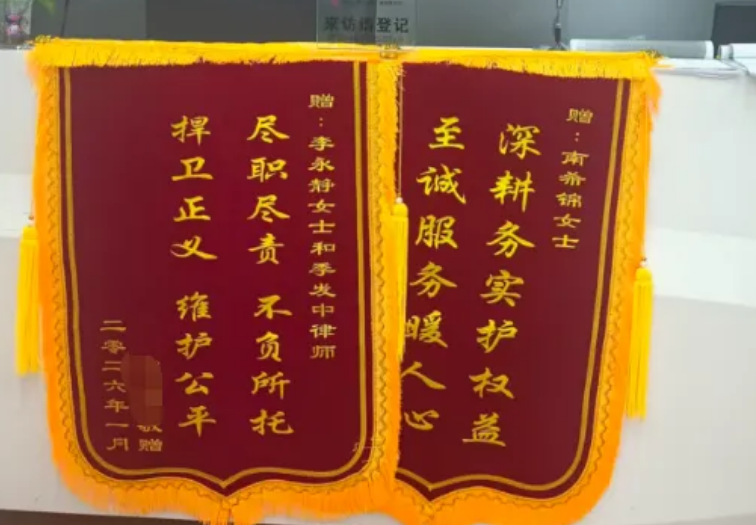 来访请登记
赠：李永静女士和季发中律师
尽职尽责 不负所托
捍卫正义 维护公平
敬赠
二零二六年一月
赠：南希锦女士
深耕务实护权益
至诚服务暖人心